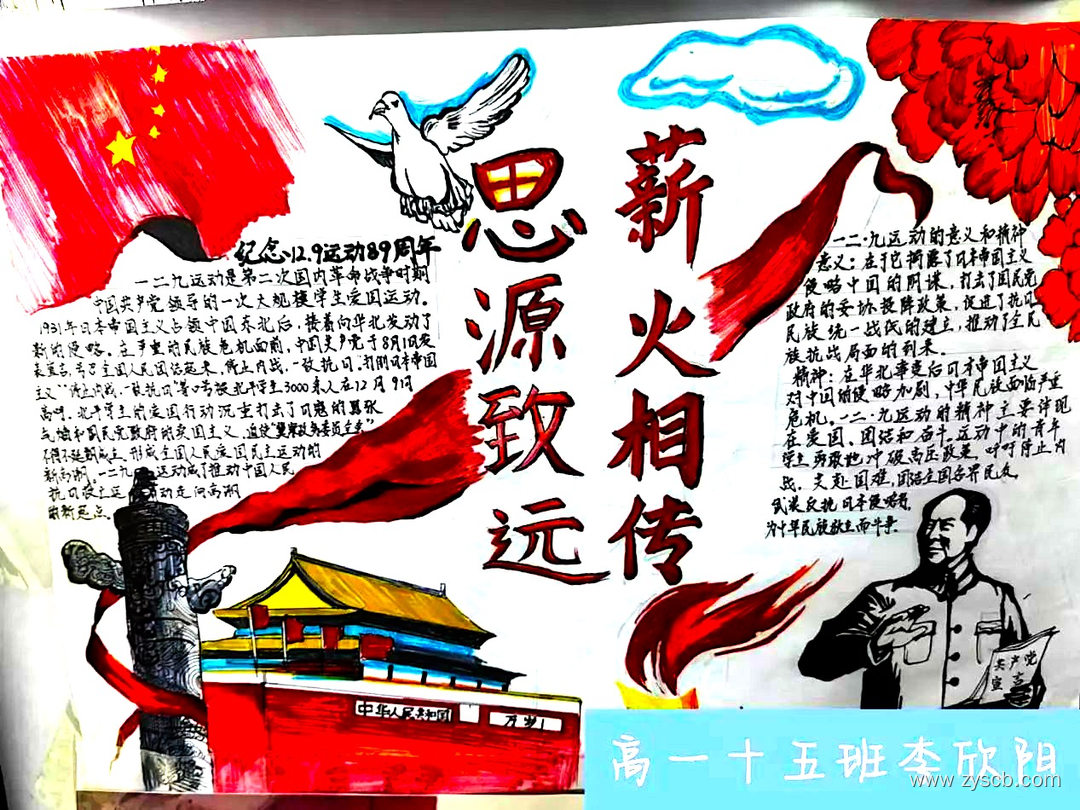 思源致远
薪火相传
纪念12.9运动89周年
一二九运动是第二次国内革命战争时期
中国共产党领导的一次大规模学生爱国运动。
1931年日本帝国主义占领中国东北后,接着向华北发动了
新的侵略。在严重的民族危机面前,中国共产党于8月1日发
表宣言,号召全国人民团结起来,停止内战,一致抗日。"打倒日本帝国
主义""停止内战,一致抗日"等口号 北平学生3000多人在12月9日
高呼。北平学生的爱国行动沉重打击了日寇的嚣张
气焰和国民党政府的卖国主义,迫使"冀察政务委员会"
不得不延期成立,形成全国人民爱国民主运动的
新高潮。一二九运动成了推动中国人民
抗日救亡运动走向高潮
的新起点。
一二·九运动的意义和精神
意义:在于它揭露了日本帝国主义
侵略中国的阴谋,打击了国民党
政府的妥协投降政策,促进了抗日
民族统一战线的建立,推动了全民
族抗战局面的到来。
精神:在华北事变后日本帝国主义
对中国的侵略加剧,中华民族面临严重
危机。一二·九运动的精神主要体现
在爱国、团结和奋斗。运动中的青年
学生勇敢地冲破高压政策,呼吁停止内
战,共赴国难,团结全国各界民众
武装反抗日本侵略者,
为中华民族救亡而斗争。
共产党
宣言
中华人民共和国
万岁
高一十五班李欣阳
www.zyscb.com